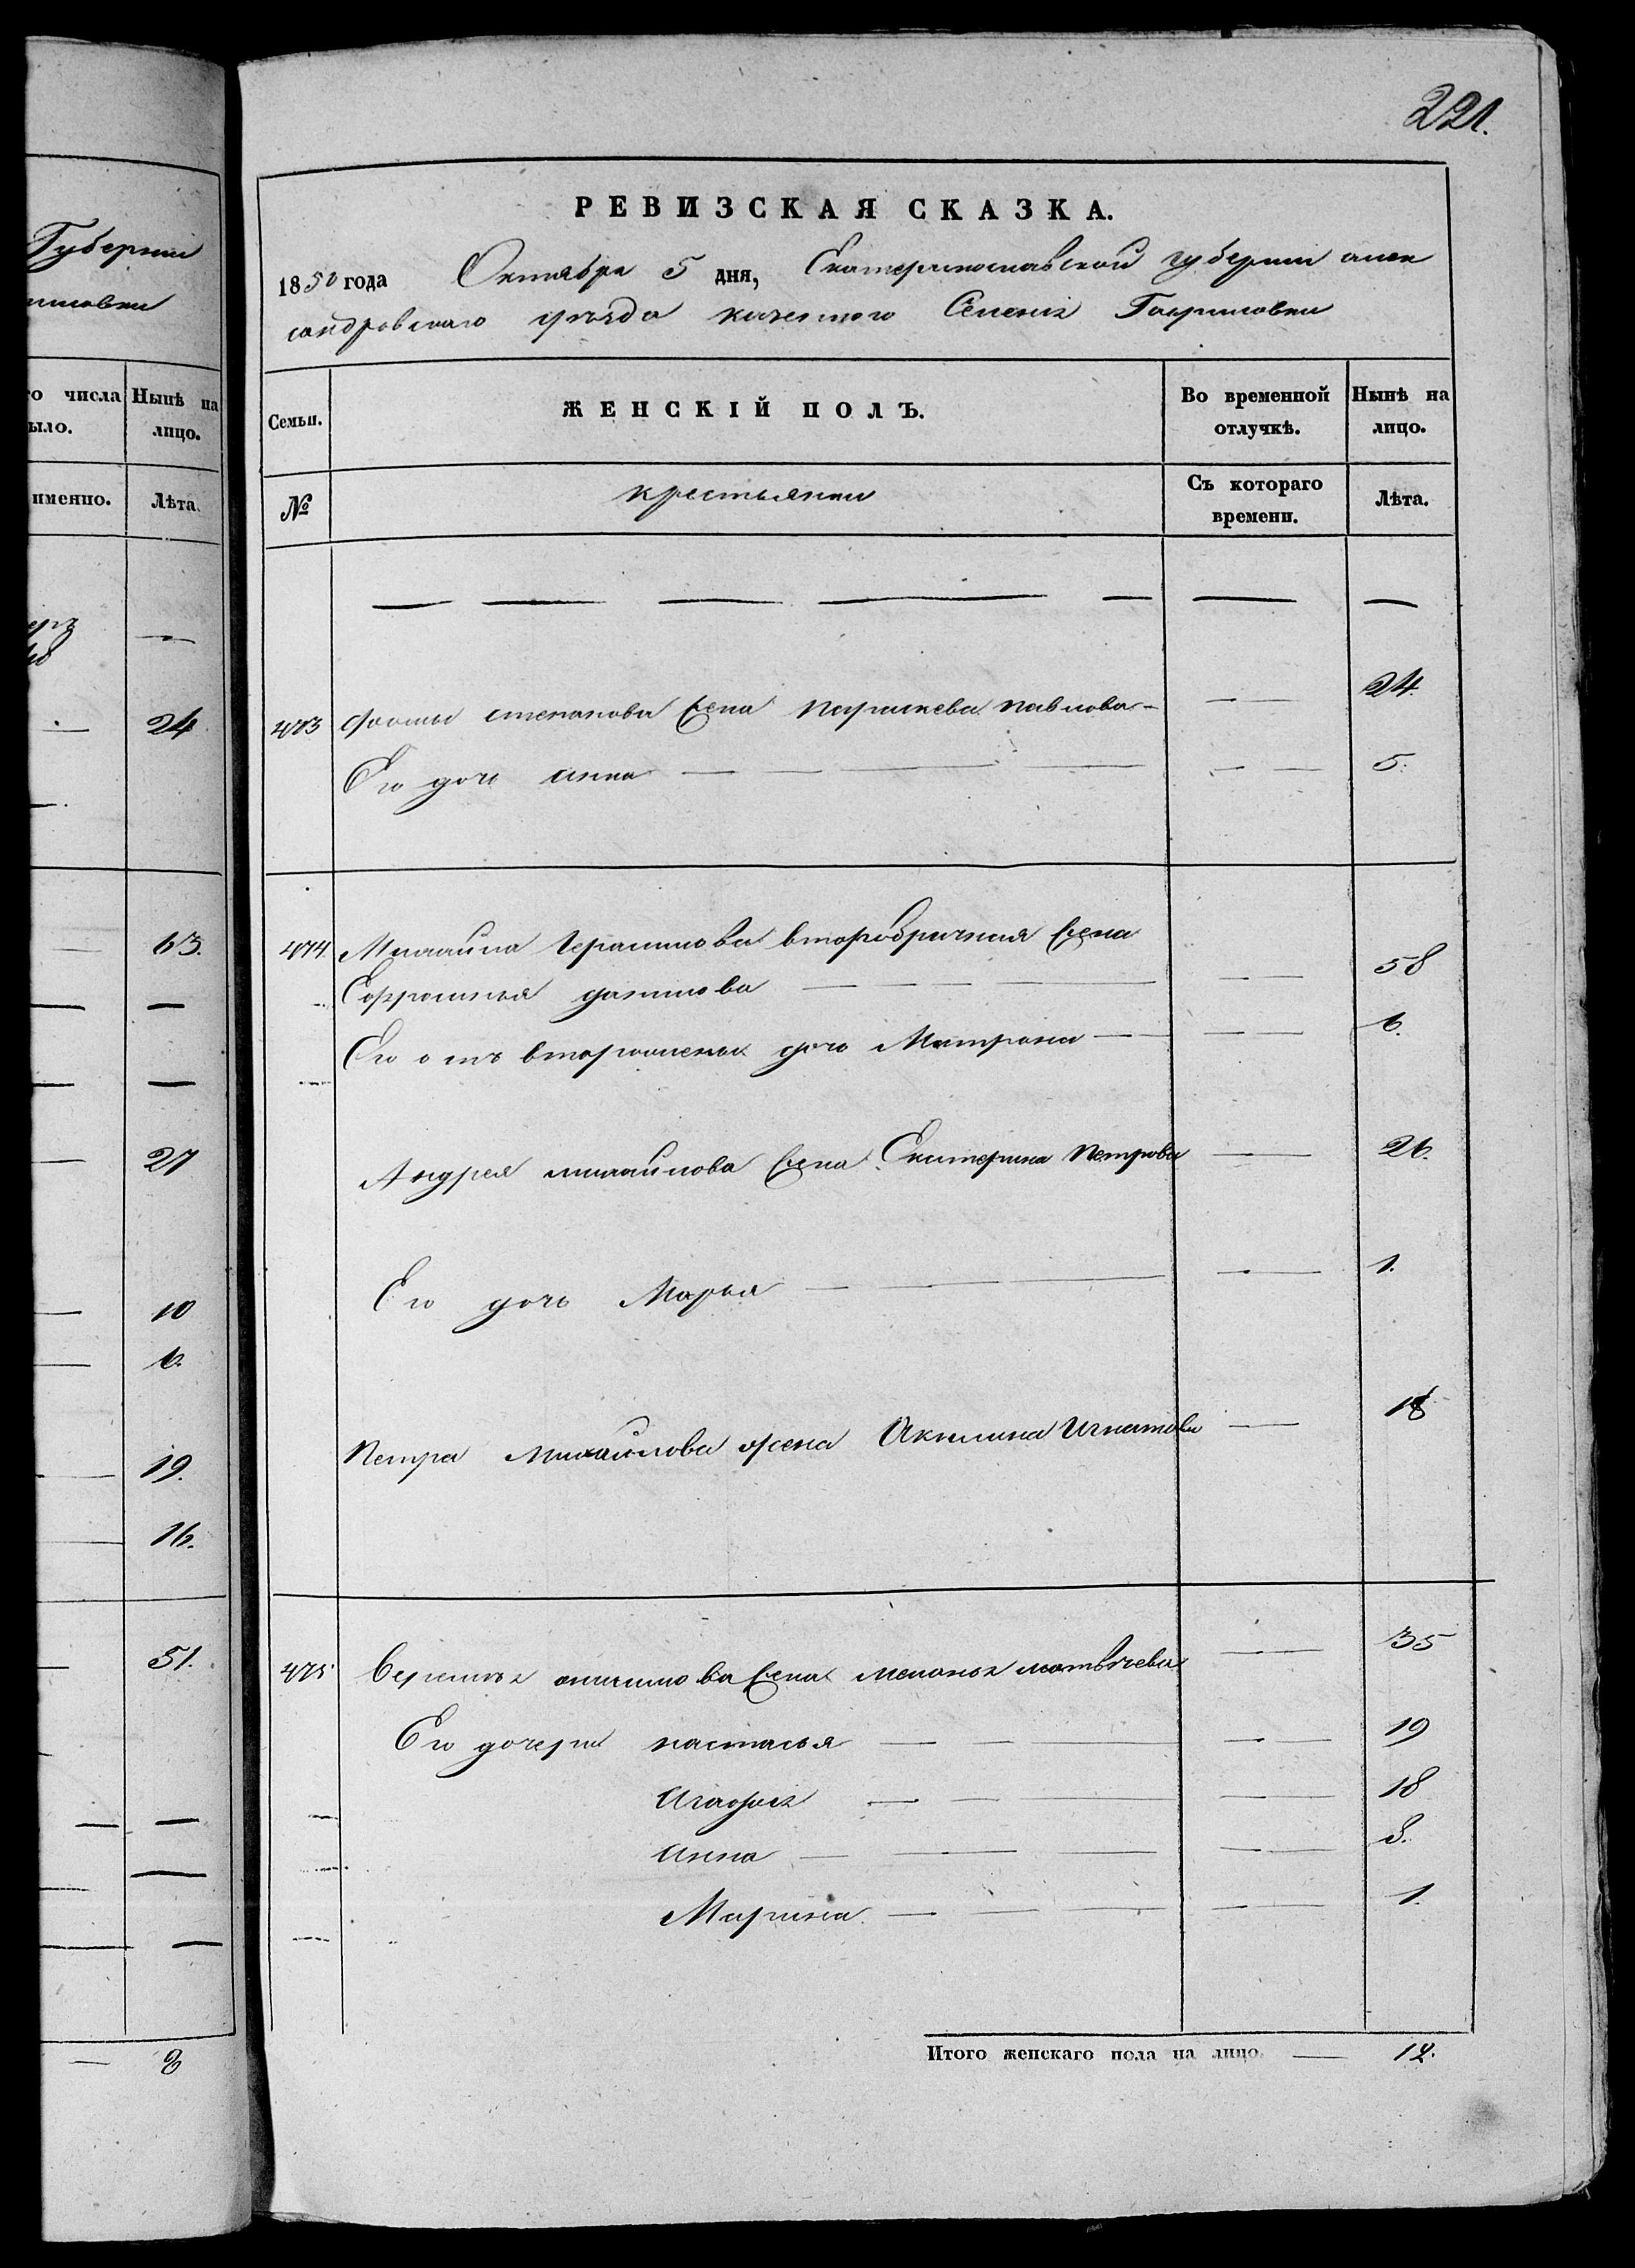 221.
Губерніи
го числа
Нынѣ на
ыло.
лицо.
именно.
Лѣта.
—
— 24
63.
—
—
27
10
6.
19.
16.
51.
—
—
—
— 8
РЕВИЗСКАЯ СКАЗКА.
1850 года Октября 5 дня, Екатеринославской губерніи алек
сандровскаго уѣзда казеннаго Селенія Гавриловки
Семьи.
ЖЕНСКІЙ ПОЛЪ.
Во временной отлучкѣ.
Нынѣ на лицо.
№
крестьянки
Съ котораго времени.
Лѣта.
— — — — — — —
473 Фомы степанова жена параскева павлова — — 24.
Его дочь анна — — — — — — 5.
474. Михаила Герасимова второбрачная жена
Ефросинья данилова — — — — — — 58
Его отъ второй жены дочь Матрона — — — 6.
Андрея михайлова жена Екатерина петрова — 26.
Его дочь Марья — — — — — 1.
Петра Михайлова жена Акилина Игнатова — 18
475 онисимова жена меланья матвѣева — 35
Его дочери настасья — — — — — 19
Агафья — — — — 18
Анна — — — — — 8.
Марина — — — — — 1.
Итого женскаго пола на лицо. — 12.